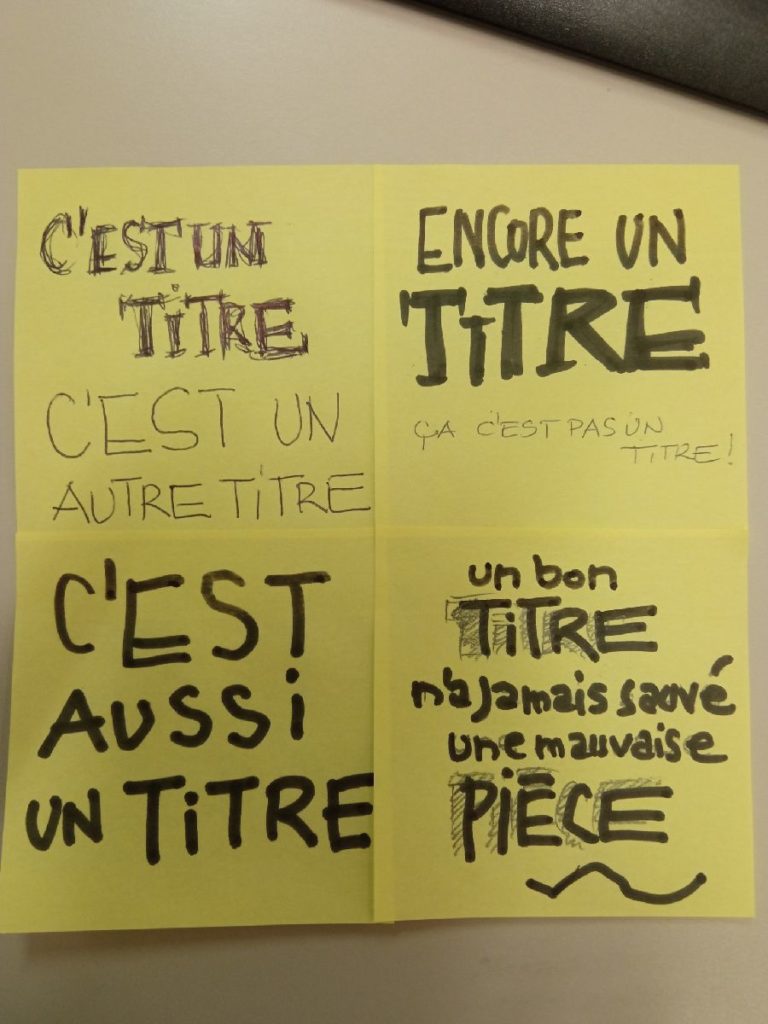 C'EST UN
TiTRE
C'EST UN
AUTRE TiTRE
ENCORE UN
TiTRE
ÇA C'EST PAS UN
TiTRE !
C'EST
AUSSi
UN TiTRE
un bon
TiTRE
n'a jamais sauvé
une mauvaise
PiÈCE